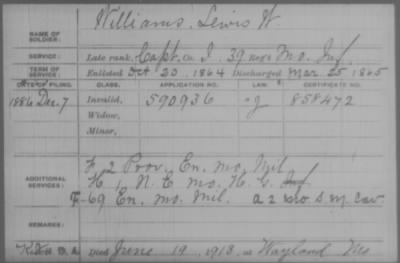 Williams, Lewis W.
NAME OF SOLDIER:
SERVICE: Late rank, Capt. Co. I, 39 Reg't Mo. Inf.
TERM OF SERVICE: Enlisted Oct 23, 1864 Discharged Mar. 25, 1865
DATE OF FILING. CLASS. APPLICATION NO. LAW. CERTIFICATE NO.
1886 Dec. 7 Invalid, 590936 "g 858472
Widow,
Minor,
F 2 Prov. En. Mo. Mil.
ADDITIONAL SERVICES: H 1 N. E. Mo. H. G. Inf
F-69 En. Mo. Mil. a 2 Mo. S. M. Cav.
REMARKS:
Died June 19, 1918, at Wayland Mo